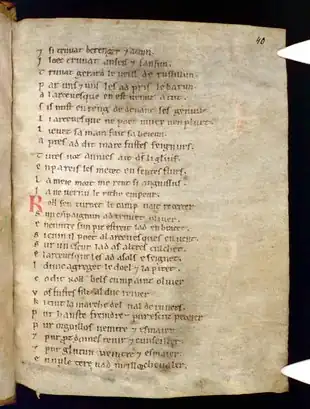 40
7 si truvat berenger 7 attun.
I loec truvat anseis 7 sansun.
T ruvat gerard le veill de russillun.
P ar uns 7 uns les ad pris le barun.
A larcevesque en est venuz atut.
S is mist en reng dedevant ses genuilz.
L i arcevesque ne poet muer nen plurt.
L ievet sa main fait sa beneicun.
A pres ad dit mare fustes seignurs.
T utes voz anmes ait d̄s li glorius.
E n pareis les metet en seintes flurs.
L a meie mort me rent si anguissus.
J a ne verrai le riche empereur.
R oll sen turnet le camp vait recercer
S un cūpaignun ad truvet oliver.
E ncuntre sun piz estreit lad enbracet.
S i cum il poet alarcevesques en vent.
S ur un escut lad as altres culchet.
E larcevesque les ad asols 7 seignet.
I dunc agreget le doel 7 la pitet.
C o dit roll bels cumpainz oliver
V os fustes filz al duc reiner
K i tint la marche del val de runers.
P ur hanste freindre 7 pur escuz peceier
P ur orgoillos veintre 7 esmaier
7 pur pzdomes tenir 7 cunseiller
7 pur glutun veintre 7 esmaier.
E n nule tere nad meillor chevaler.